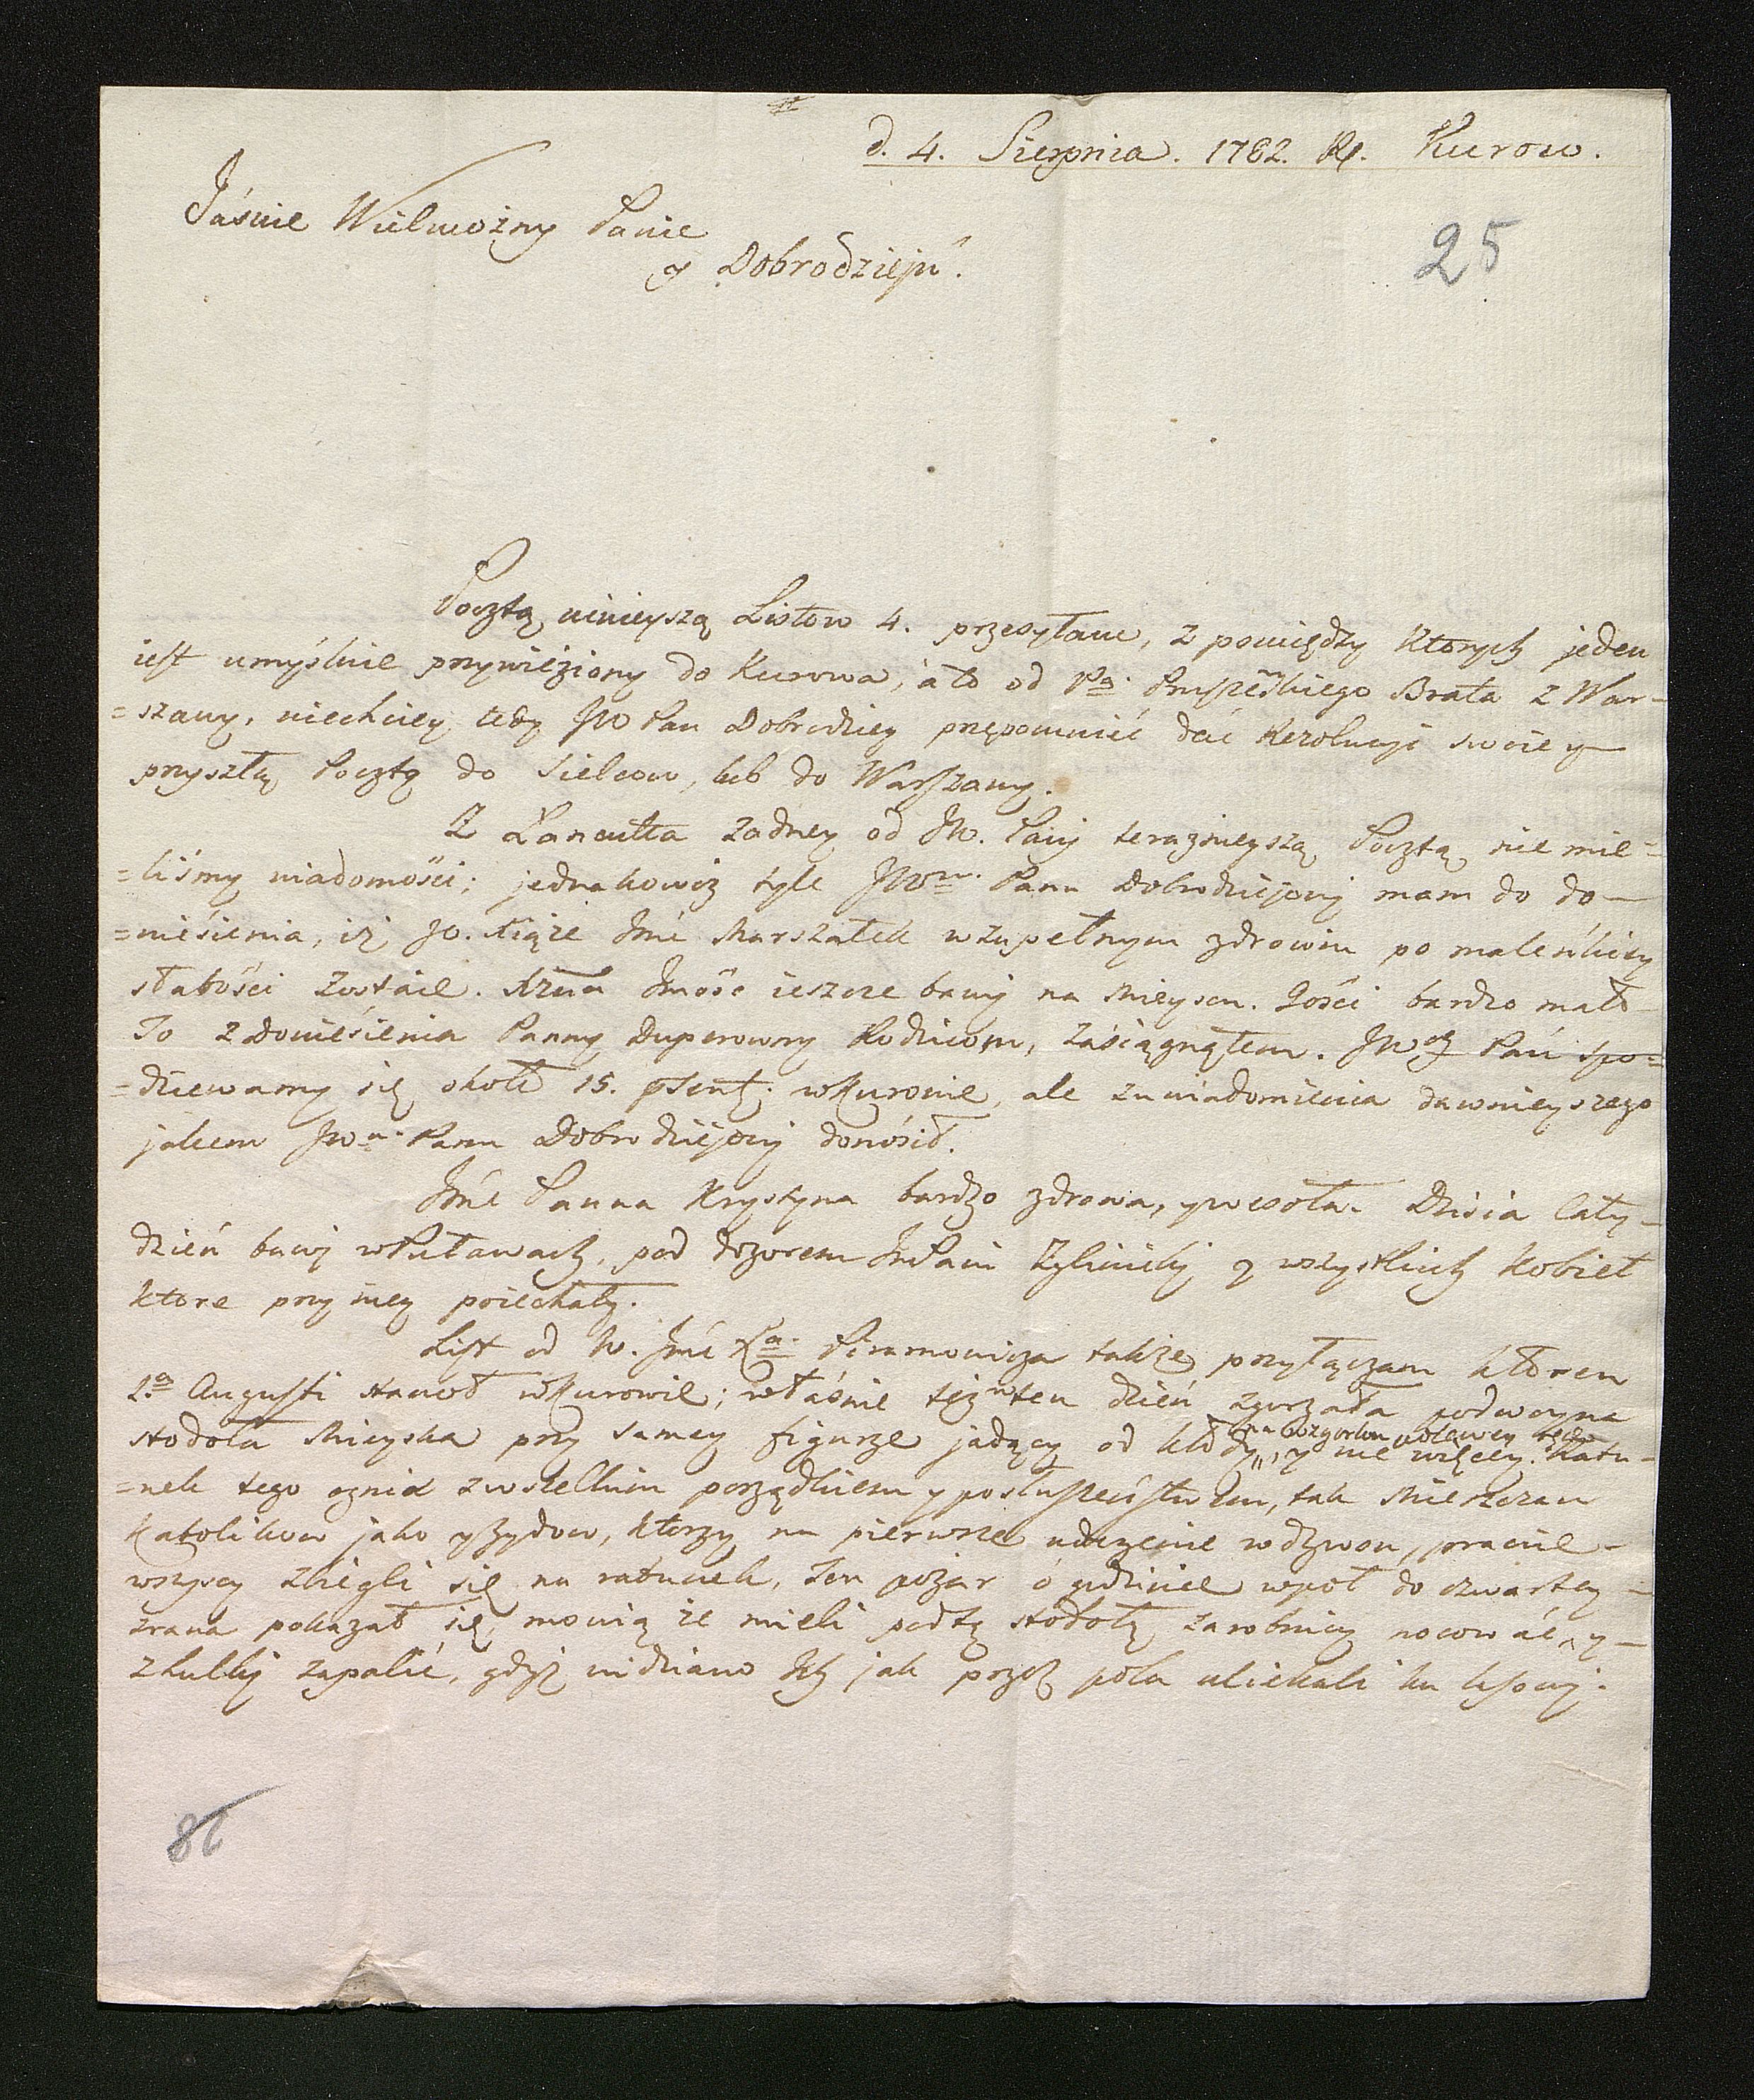 d. 4. Sierpnia. 1782. R. Kurow.
Jaśnie Wielmożny Panie
y Dobrodzieju.
25
Pocztą ninieyszą Listow 4. przesyłane, z pomiędzy Ktorych jeden
iest umyślnie przywieziony do Kurowa, a to od Brata z War-
=szawy, niechciey tedy JW Pan Dobrodziey przepomnić dać Rezolucyi swoiey
przyszłą Pocztą do Sielcow, lub do Warszawy.
Z Łancutta żadney od JW. Pani terazńieyszą Pocztą nie mie-
=liśmy wiadomości; jednakowoż tyle JWm. Panu Dobrodziejowi mam do do-
=niesienia, iż JO. Xiąże Jmć Marszałek w zupełnym zdrowiu po maleńkiey
słabości zostaie. Xżna Jmość ieszcze bawi na Mieyscu. Gości bardzo mało
To z Doniesienia Panny Duperowny Rodzicom, zasiągnąłem. JWey Pani spo=
=dziewamy się około 15. w Kurowie, ale zawiadomienia dawnieyszego
jakem JWu Panu Dobrodziejowi donosił.
Jmć Panna Krystyna bardzo zdrowa, y wesoła. Dzisia Cały-
dzień bawi w Puławach, pod dozorem JmPani y wszystkich Kobiet
ktore przy niey poiechały.
List od W. Jmć Xa. Piramowicza także przyłączam ktoren
2.a Augusti stanoł w Kurowie; właśnie też w ten dzień zgorzała podwoyna
stodoła Mieyska przy samey figurze jadący od kłody, na Wzgorku y nie więcey. Ratu-
=nek tego ognia z wszelkim porządkiem y posłuszeństwem, tak Mieszczan
Katolikow jako y Żydow, ktorzy na pierwsze uderzenie w dzwon, prawie-
wszyscy zbiegli się na ratunek, Ten pożar o godzinie wpoł do czwartey-
zrana pokazał się, mowią że mieli pod tą stodołą zarobnicy nocować, y-
z lulki zapalić, gdyż widziano Ich jak przez pola uciekali ku
86